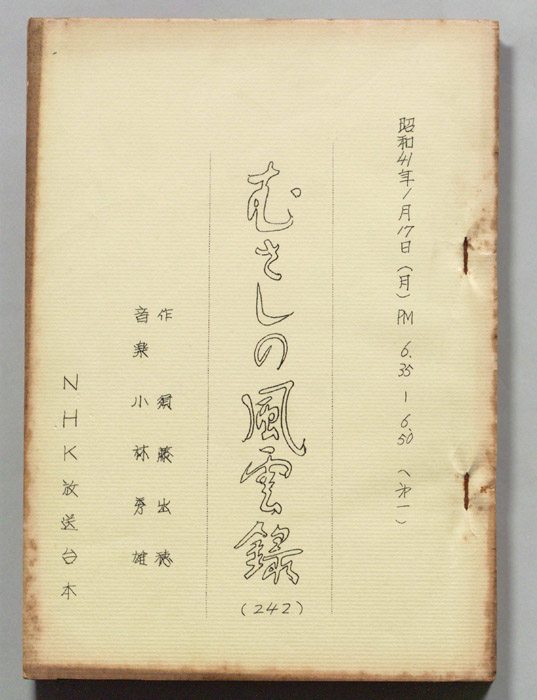 昭和41年1月17日(月) PM 6.35-6.50 (才一)
むさしの風雲録
(242)
作 須藤出穂
音楽 小林秀雄
NHK放送台本